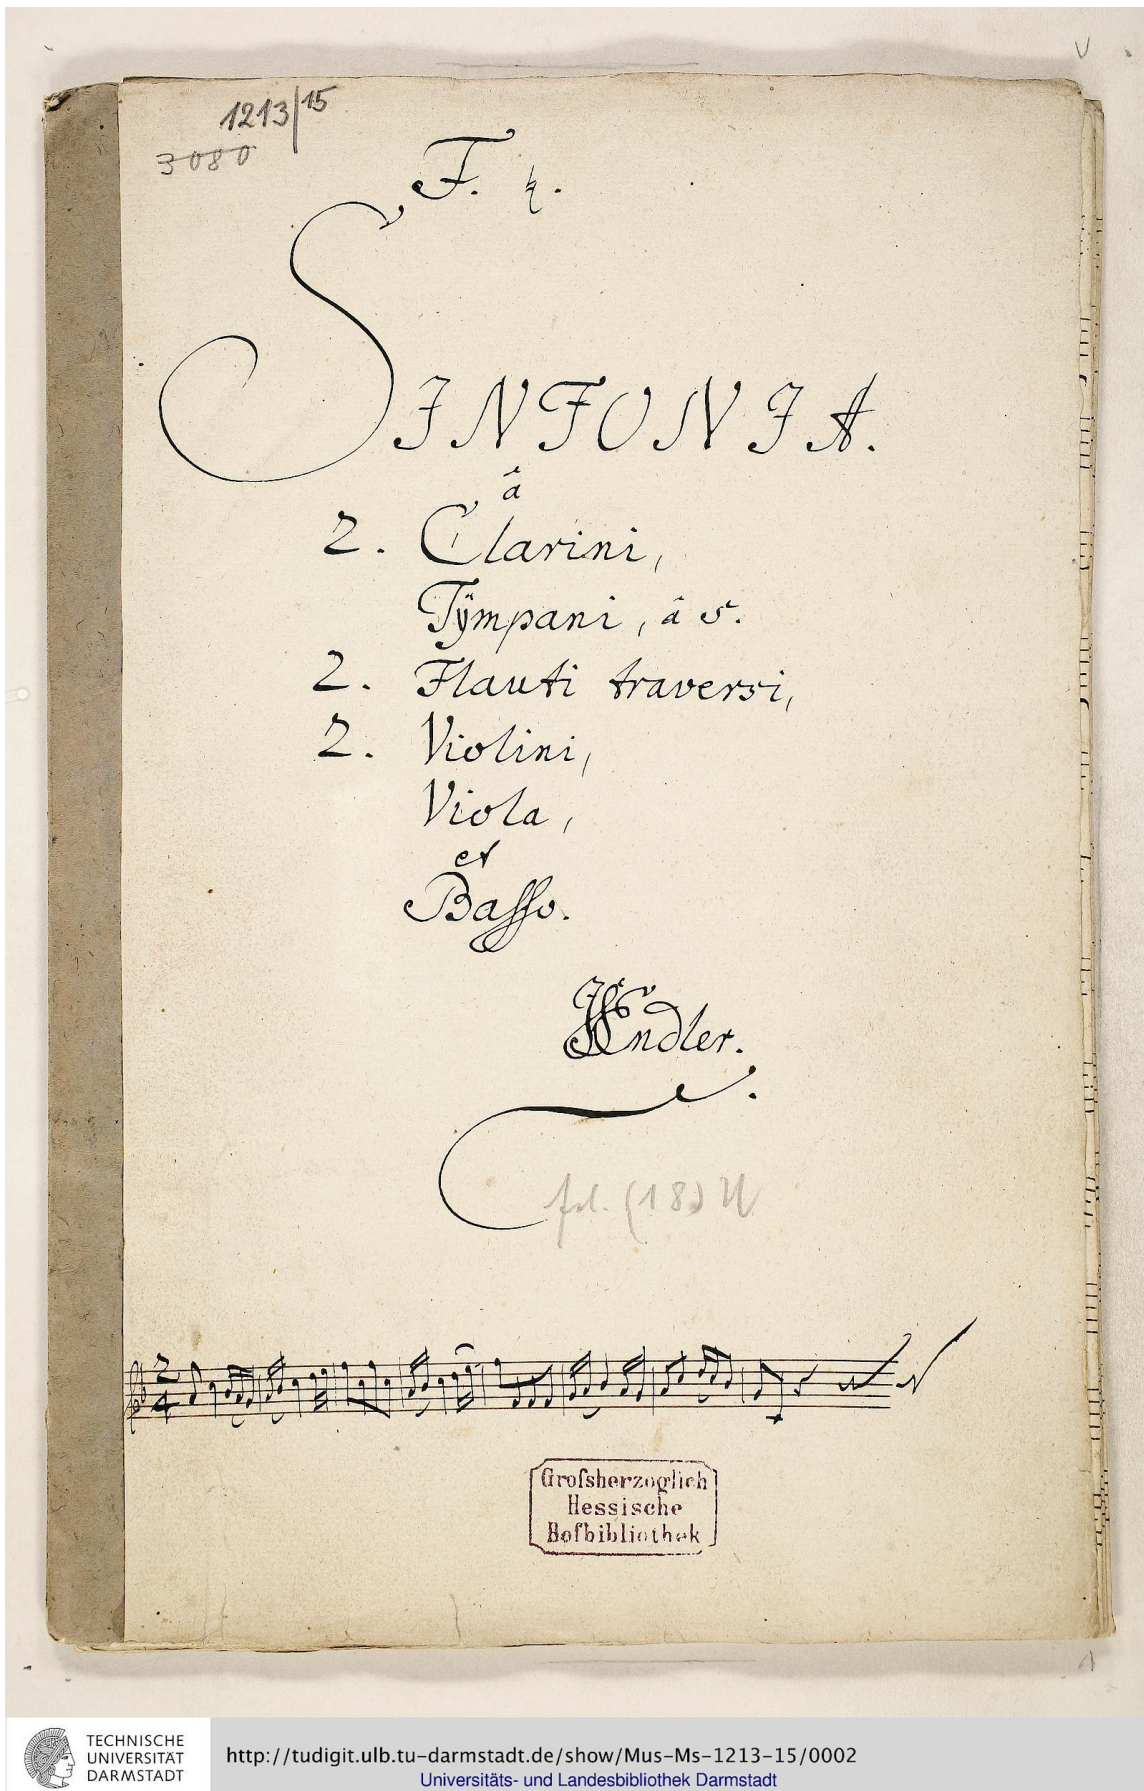 1213/15
3080
F. ♮.
SINFONIA.
â
2. Clarini,
Tÿmpani, â 5.
2. Flauti traversi,
2. Violini,
Viola,
et
Basso.
JSEndler.
(18)
2
4
Groſsherzoglich
Hessische
Hofbibliothek
TECHNISCHE
UNIVERSITÄT
DARMSTADT
http://tudigit.ulb.tu-darmstadt.de/show/Mus-Ms-1213-15/0002
Universitäts- und Landesbibliothek Darmstadt